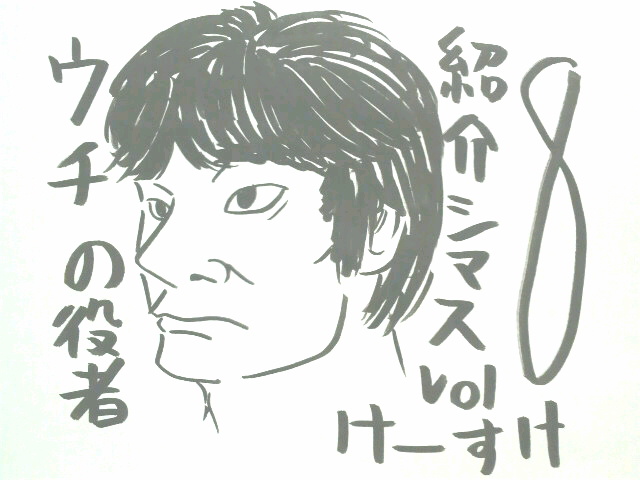 ウチの役者
紹介シマス
vol
8
けーすけ